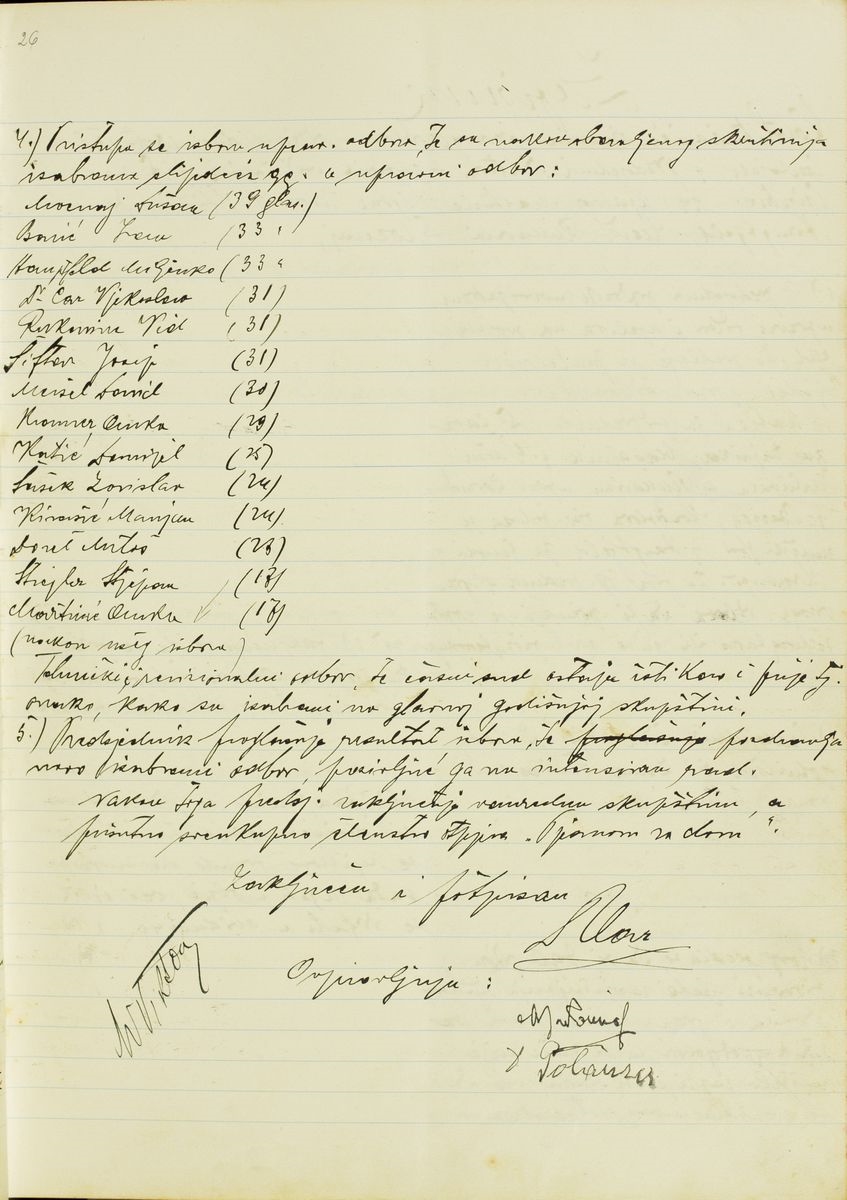 26
4.) Pristupa se izboru uprav. odbora, te su nakon obavljenog skrutinija
izabrana slijedeća gg. u upravni odbor:
Dušan (39 glas.)
Banić Ivan (33 "
Miljenko (33 "
Dr. Car Vjekoslav (31)
Rukavina Vid (31)
Šiftar Josip (31)
Meisel David (30)
Kramer Anka (29)
Katić Danijel (25)
Šušek Zorislav (24)
Marijan (24)
Miloš (23)
Stiegler Stjepan (17)
Martinić Anka (17)
(nakon užeg izbora)
Tehnički i revizionalni odbor, te časni sud ostaju isti kao i prije tj.
onako, kako su izabrani na glavnoj godišnjoj skupštini.
5.) Predsjednik proglašuje rezultat izbora, te proglašuje pozdravlja
novo izabrani odbor, pozivljuć ga na intenzivan rad.
Nakon toga preds. zaključuje vanrednu skupštinu, a
prisutno sveukupno članstvo otpjeva „Pjesmom za dom".
Zaključen i potpisan
Ovjerovljuju: